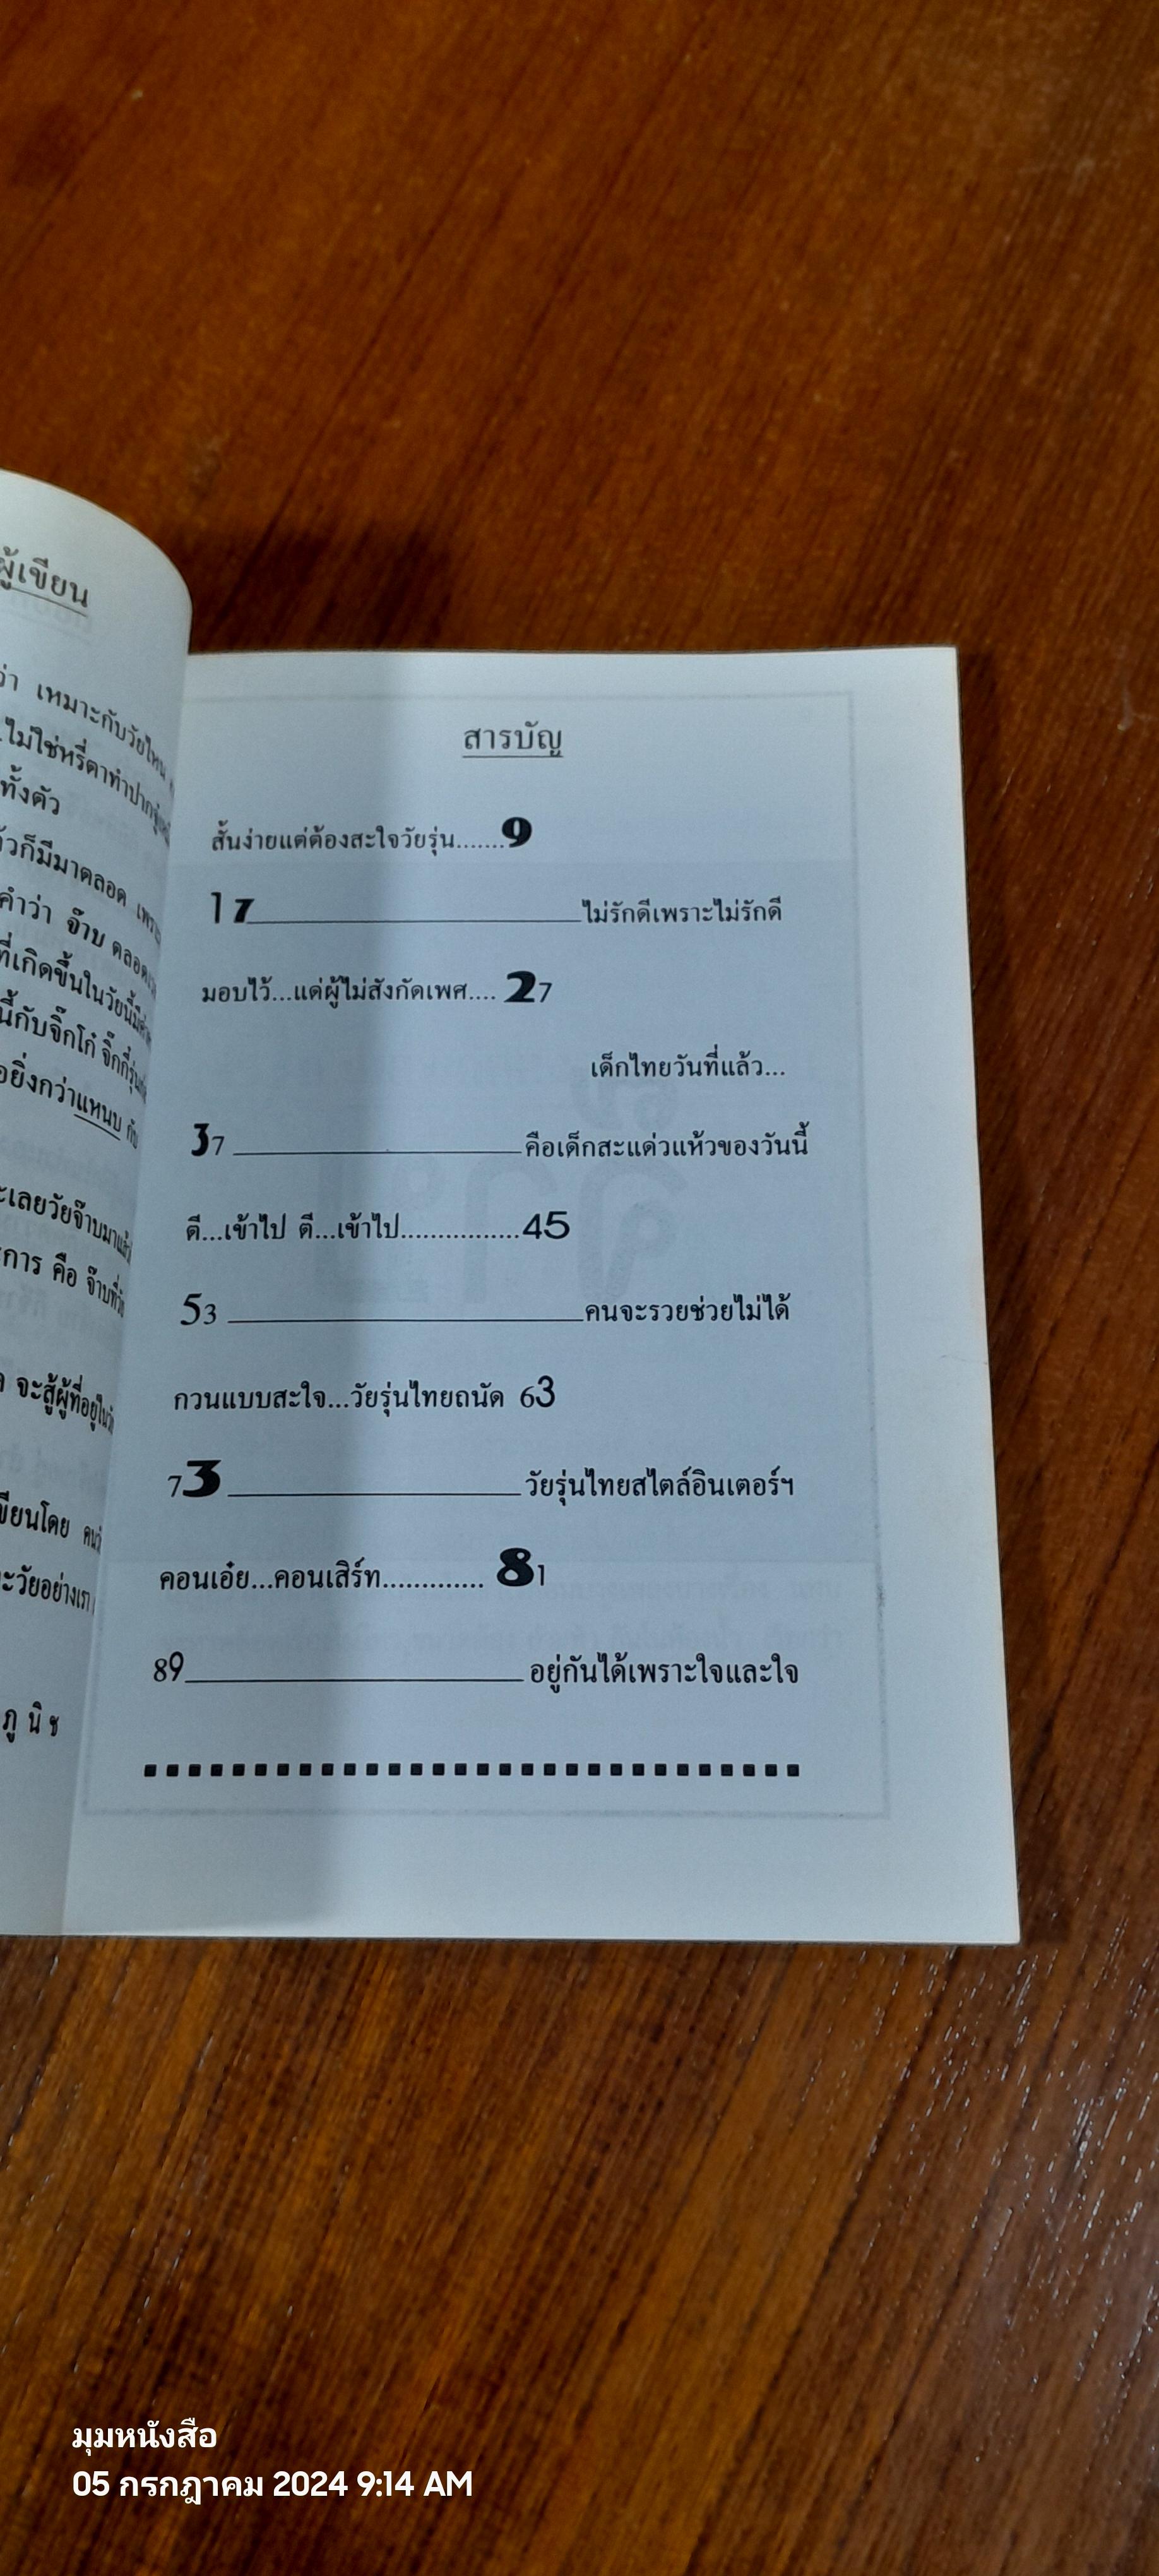 ผู้เขียน
ว่า เหมาะกับวัยไหน
ไม่ใช่หรี่ตาทำปาก
ทั้งตัว
ก็มีมาตลอด
คำว่า จ๊าบ ตลอด
ที่เกิดขึ้นในวัยนี้มี
นี้กับจิ๊กโก๋ จิ๊กกี๋รุ่น
ยิ่งกว่าแหนบ กับ
เลยวัยจ๊าบมาแล้ว
การ คือ จ๊าบที่
จะสู้ผู้ที่อยู่ใน
เขียนโดย
วัยอย่างเรา
ภู นิ ช
สารบัญ
สั้นง่ายแต่ต้องสะใจวัยรุ่น.......9
17 ไม่รักดีเพราะไม่รักดี
มอบไว้...แด่ผู้ไม่สังกัดเพศ.... 27
เด็กไทยวันที่แล้ว...
37 คือเด็กสะแด่วแห้วของวันนี้
ตี...เข้าไป ตี...เข้าไป................45
53 คนจะรวยช่วยไม่ได้
กวนแบบสะใจ...วัยรุ่นไทยถนัด 63
73 วัยรุ่นไทยสไตล์อินเตอร์ฯ
คอนเอ๋ย...คอนเสิร์ท............. 81
89 อยู่กันได้เพราะใจและใจ
มุมหนังสือ
05 กรกฎาคม 2024 9:14 AM